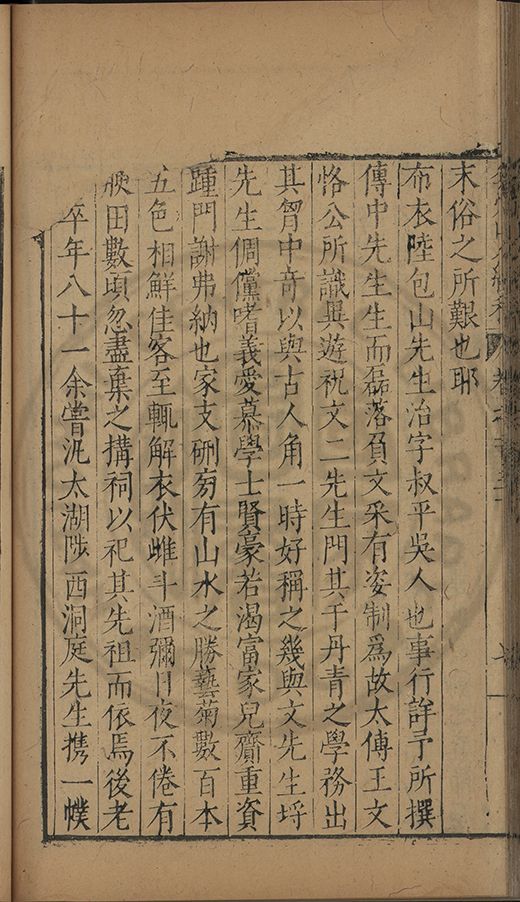 末俗之所艱也耶
布衣陸包山先生治字叔平吳人也事行詳予所撰
傳中先生生而磊落負文采有姿制爲故太傅王文
恪公所識與遊祝文二先生門其于丹青之學務出
其胷中奇以與古人角一時好稱之幾與文先生埒
先生倜儻嗜義愛慕學士賢豪若渴富家兒齎重資
踵門謝弗納也家支硎旁有山水之勝藝菊數百本
五色相鮮佳客至輒解衣伏雌斗酒彌日夜不倦有
腴田數頃忽盡棄之搆祠以祀其先祖而依焉後老
卒年八十一余嘗汎太湖陟西洞庭先生攜一幞